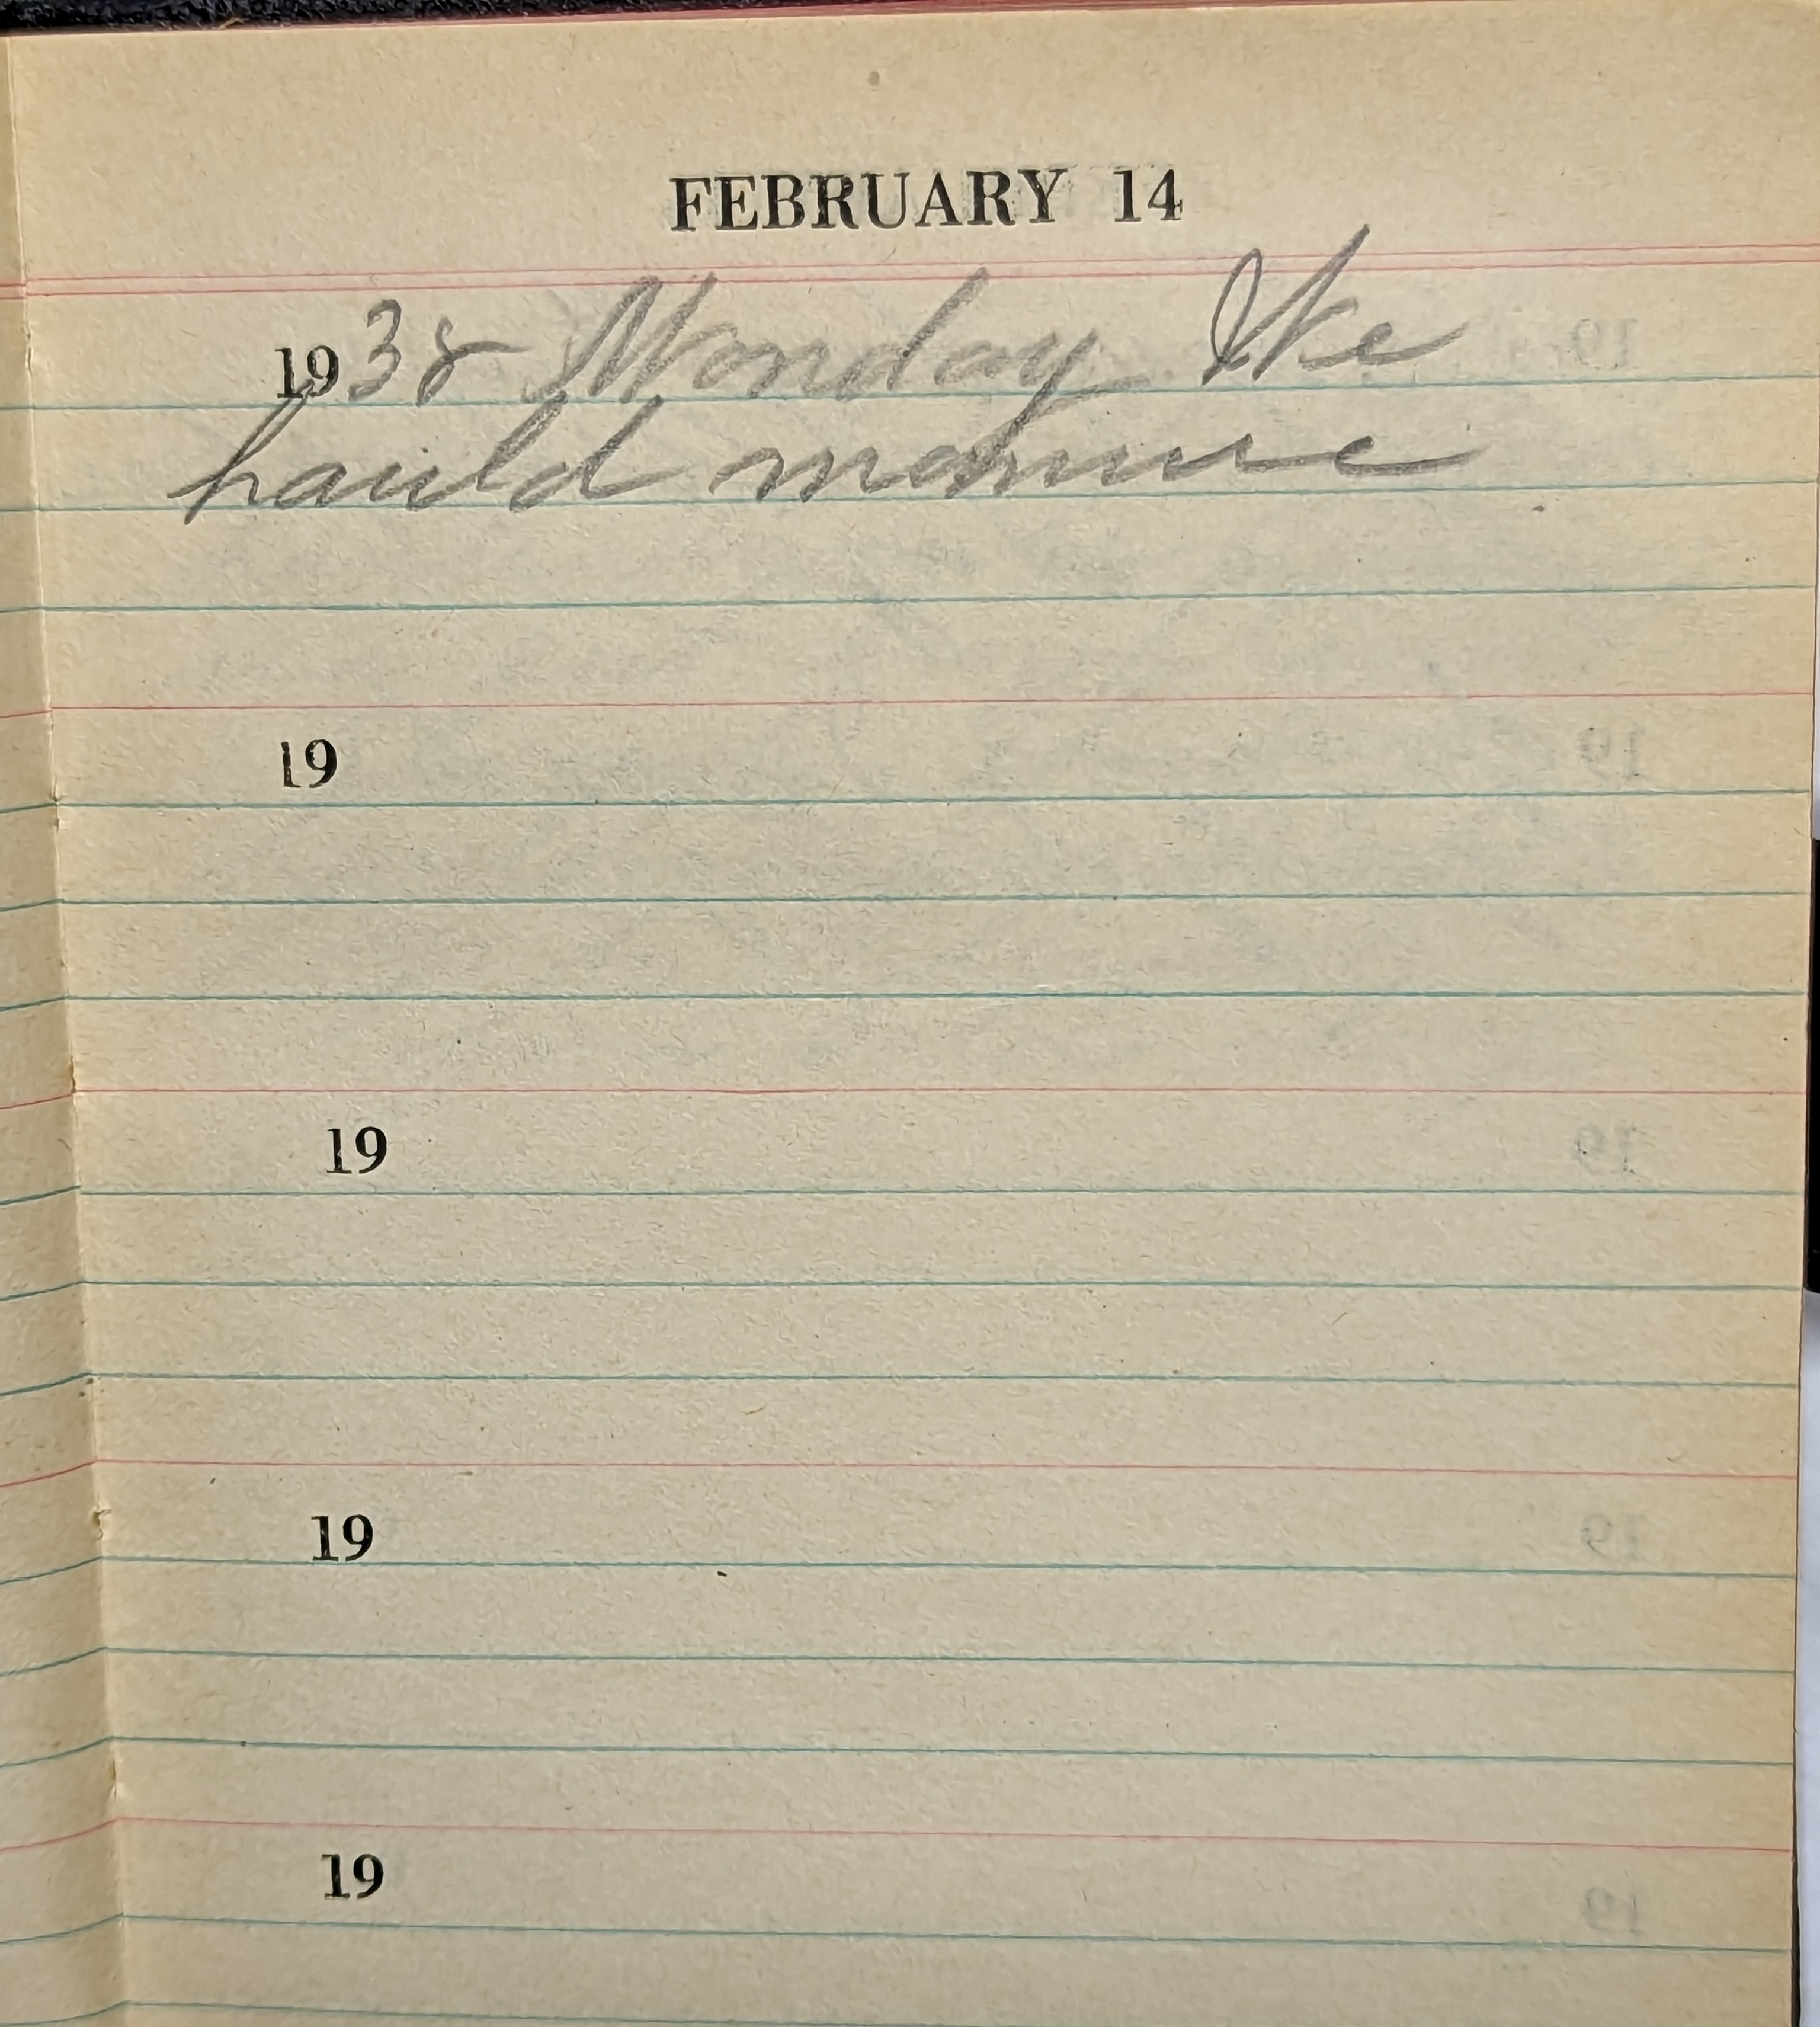 FEBRUARY 14
1938 Monday We
hauld manure
19
19
19
19